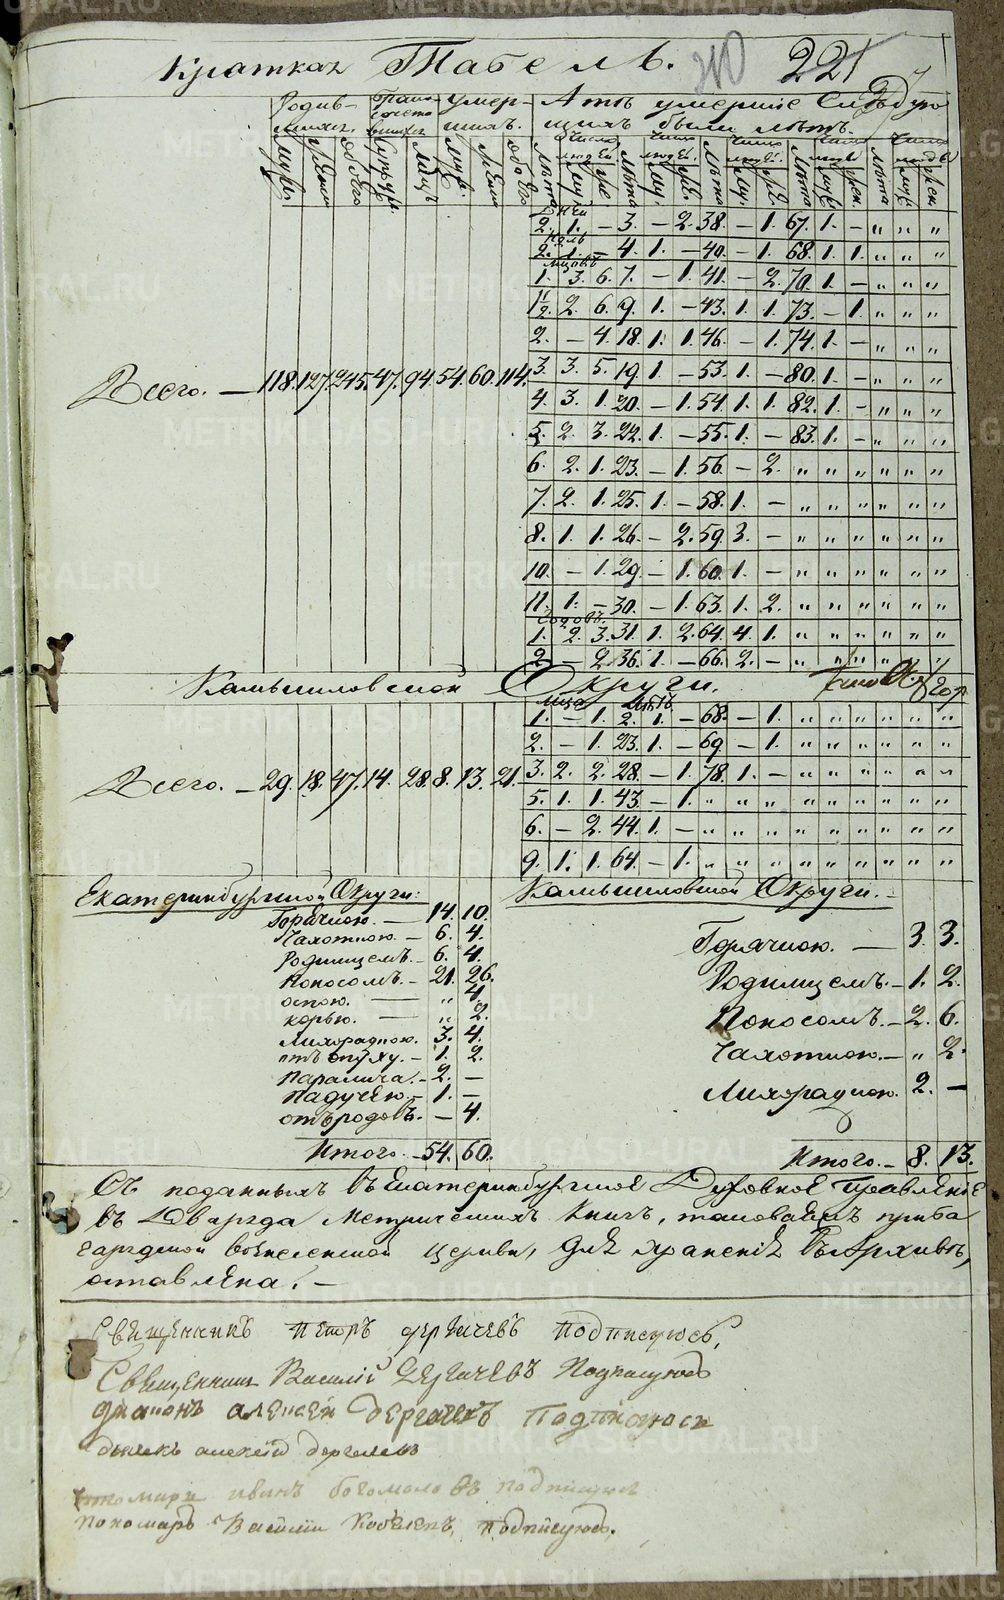 Краткая Табель.
221
Родив-
шихся.
умер-
шихъ.
А тѣ умершіе
шихъ были лѣтъ.
Всего. — 118. 127. 245. 47. 94. 54. 60. 114.
Дней
2. 1. — 3. — 2. 38. — 1. 67. 1. — " " "
2. 1. — 4. 1. — 40. — 1. 68. 1. 1. " " "
1. 3. 6. 7. — 1. 41. — 2. 70. 1. — " " "
1½. 2. 6. 9. 1. — 43. 1. 1. 73. — 1. " " "
2. — 4. 18. 1. 1. 46. — 1. 74. 1. — " " "
3. 3. 5. 19. 1. — 53. 1. — 80. 1. — " " "
4. 3. 1. 20. — 1. 54. 1. 1. 82. 1. — " " "
5. 2. 3. 22. 1. — 55. 1. — 83. 1. — " " "
6. 2. 1. 23. — 1. 56. — 2. " " " " " "
7. 2. 1. 25. 1. — 58. 1. — " " " " " "
8. 1. 1. 26. — 2. 59. 3. — " " " " " "
10. — 1. 29. — 1. 60. 1. — " " " " " "
11. 1. — 30. — 1. 63. 1. 2. " " " " " "
Годовъ.
1. 2. 3. 31. 1. 2. 64. 4. 1. " " " " " "
2. — 2. 36. 1. — 66. 2. — " " " " " "
Камышловской Округи.
Всего. — 29. 18. 47. 14. 28. 8. 13. 21.
1. — 1. 2. 1. — 68. — 1. " " " " " "
2. — 1. 23. 1. — 69. — 1. " " " " " "
3. 2. 2. 28. — 1. 78. 1. — " " " " " "
5. 1. 1. 43. — 1. " " " " " " " " "
6. — 2. 44. 1. — " " " " " " " " "
9. 1. 1. 64. — 1. " " " " " " " " "
Екатеринбургской Округи:
Горячкою. — 14. 10.
Чахоткою. — 6. 4.
Родимцемъ. — 6. 4.
Поносомъ. — 21. 26.
оспою. — " 4.
корью. — " 2.
Лихорадкою. 3. 4.
отъ опуху. — 1. 2.
Паралича. — 2. —
Падучею. — 1. —
отъ родовъ. — 4.
Итого. — 54. 60.
Камышловской Округи.
Горячкою. — 3. 3.
Родимцемъ. — 1. 2.
Поносомъ. — 2. 6.
Чахоткою. — " 2.
Лихорадкою. 2. —
Итого. — 8. 13.
Съ поданныхъ въ Екатеринбургское Духовное Правленіе
въ Двагода Метрическихъ книгъ, таковаяжъ
Вознесенской церкви, для храненія въ Архивѣ,
оставлена. —
Священникъ Петръ дергачевъ подписуюсь,
Священникъ Василій Дергачевъ Подписуюсь
диаконъ алексей дергачевъ Подписуюсь
дьячекъ алексѣй дергачевъ
пономарь иванъ богомоловъ подписуюсь
пономарь Василій подписуюсь.
METRIKI.GASO-URAL.RU